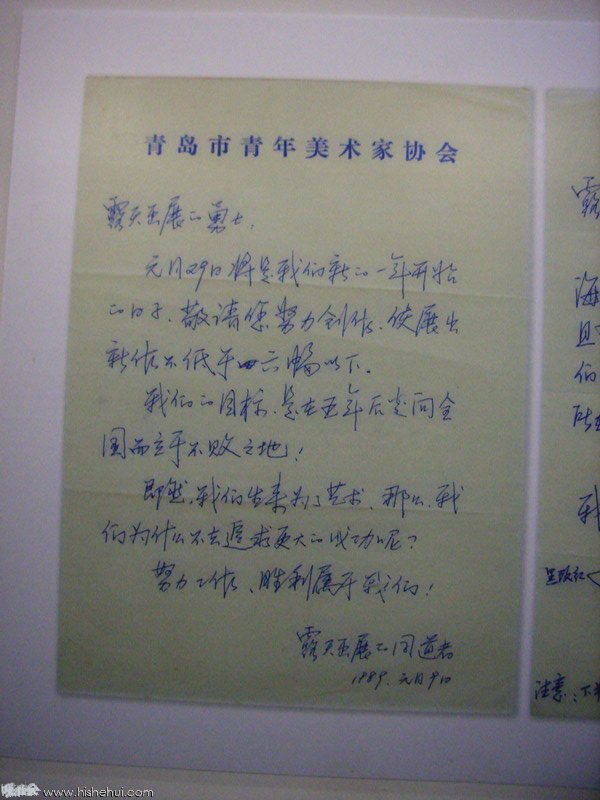 青岛市青年美术家协会
露天画展的勇士,
元月29日将是我们新的一年开始
的日子、敬请您努力创作、使展出
新作不低于六幅以下。
我们的目标、是在五年后走向全
国而立于不败之地!
即然,我们生来为了艺术、那么、我
们为什么不去追求更大的成功呢?
努力工作、胜利属于我们!
露天画展的同道者
1989.元月9日
海
且
们
我
注意:下
www.hishehui.com